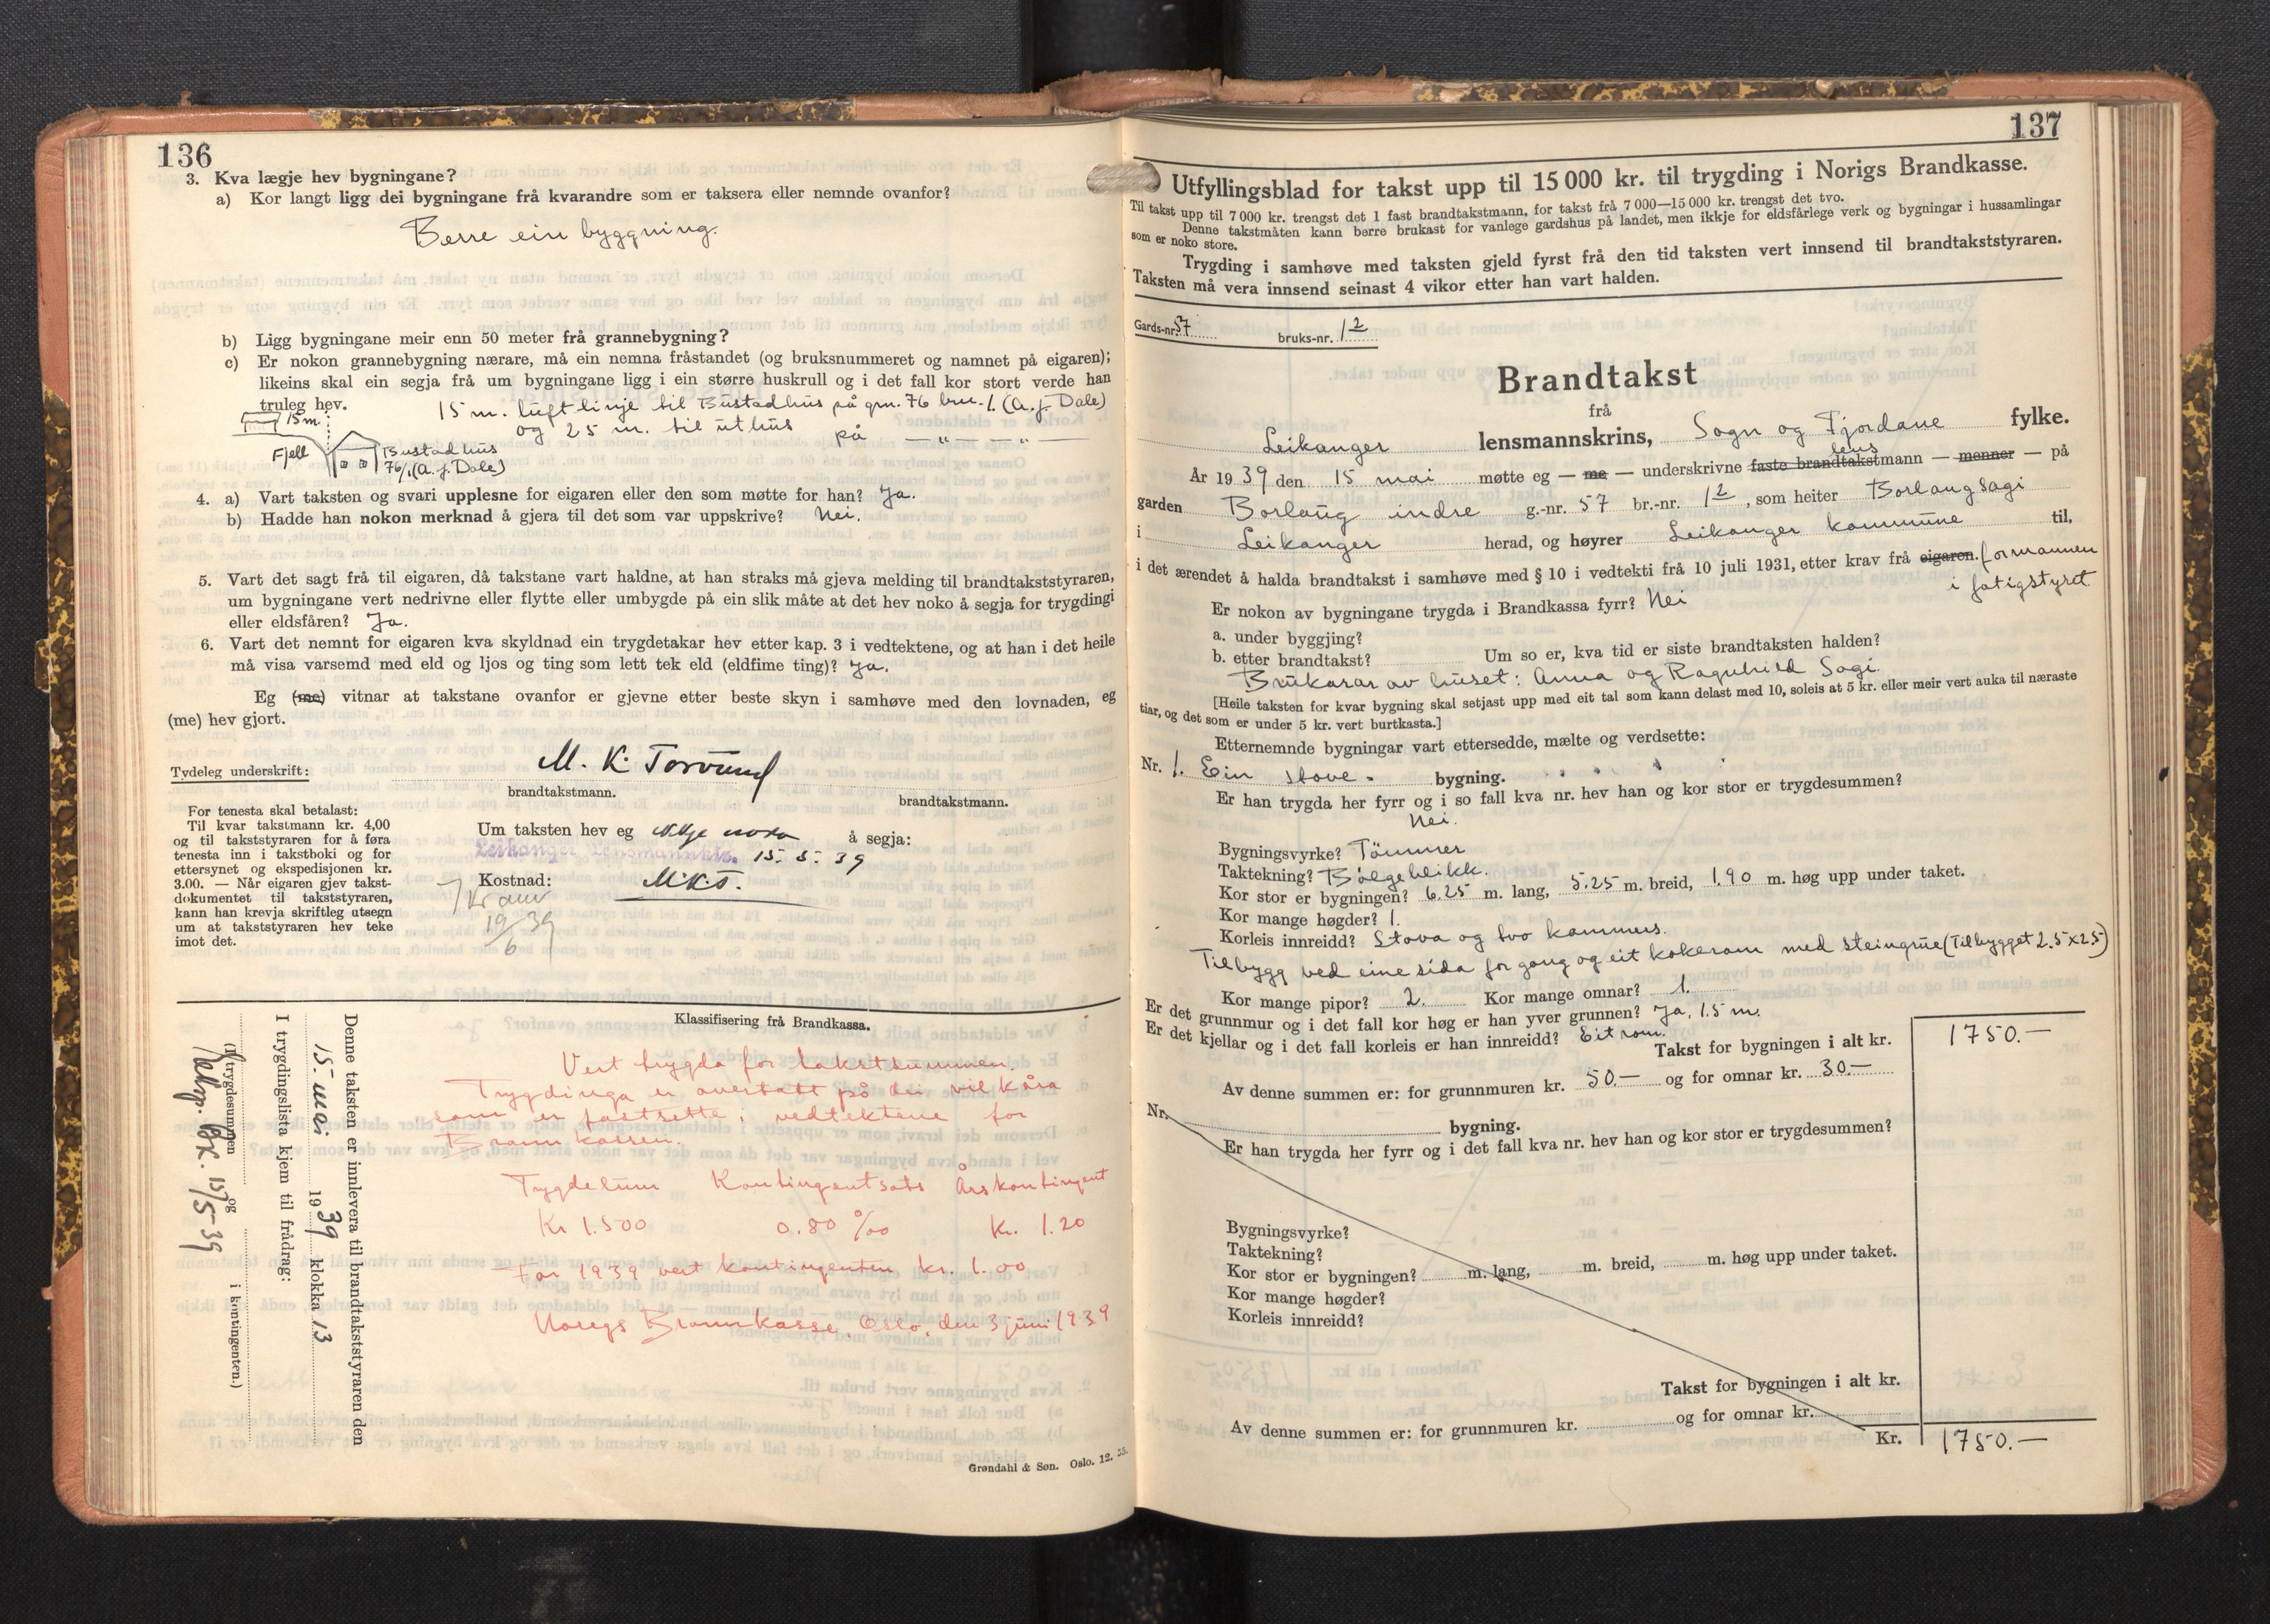 136
3. Kva lægje hev bygningane?
a) Kor langt ligg dei bygningane frå kvarandre som er taksera eller nemnde ovanfor?
Berre ein byggning.
b) Ligg bygningane meir enn 50 meter frå grannebygning?
c) Er nokon grannebygning nærare, må ein nemna fråstandet (og bruksnummeret og namnet på eigaren);
likeins skal ein segja frå um bygningane ligg i ein større huskrull og i det fall kor stort verde han
truleg hev.
15 m. luftlinje til Bustadhus på gnr. 76 bru. 1. (A. J. Dale)
og 25 m. til uthus på — „ — — „ —
15 m.
Fjell
Bustadhus
76/1. (A. J. Dale)
4. a) Vart taksten og svari upplesne for eigaren eller den som møtte for han? Ja.
b) Hadde han nokon merknad å gjera til det som var uppskrive? Nei.
5. Vart det sagt frå til eigaren, då takstane vart haldne, at han straks må gjeva melding til brandtakststyraren,
um bygningane vert nedrivne eller flytte eller umbygde på ein slik måte at det hev noko å segja for trygdingi
eller eldsfåren? Ja.
6. Vart det nemnt for eigaren kva skyldnad ein trygdetakar hev etter kap. 3 i vedtektene, og at han i det heile
må visa varsemd med eld og ljos og ting som lett tek eld (eldfime ting)? Ja.
Eg (me) vitnar at takstane ovanfor er gjevne etter beste skyn i samhøve med den lovnaden, eg
(me) hev gjort.
Tydeleg underskrift: M. K. Torvund
brandtakstmann. brandtakstmann.
For tenesta skal betalast:
Til kvar takstmann kr. 4,00
og til takststyraren for å føra
tenesta inn i takstboki og for
ettersynet og ekspedisjonen kr.
3.00. — Når eigaren gjev takst-
dokumentet til takststyraren,
kann han krevja skriftleg utsegn
um at takststyraren hev teke
imot det.
Um taksten hev eg ikkje noko å segja:
Leikanger Lensmannsktr. 15. 5. 39
Kostnad: M.K.T.
19/6 39
Klassifisering frå Brandkassa.
Vert trygda for takstsummen.
Trygdinga er overtatt på dei vilkåra
som er fastsette i vedtektene for
Brannkassen.
Trygdesum Kontingentsats Årskontingent
Kr 1.500 0.80 ‰ Kr. 1.20
For 1939 vert kontingenten kr. 1.00
Noregs Brannkasse, Oslo, den 3 juni 1939
Denne taksten er innlevera til brandtakststyraren den
15. mai 1939 klokka 13
I trygdingslista kjem til frådrag:
(I trygdesummen og i kontingenten.)
15/5 39
Grøndahl & Søn. Oslo. 12. 35.
137
Utfyllingsblad for takst upp til 15 000 kr. til trygding i Norigs Brandkasse.
Til takst upp til 7 000 kr. trengst det 1 fast brandtakstmann, for takst frå 7 000—15 000 kr. trengst det tvo.
Denne takstmåten kann berre brukast for vanlege gardshus på landet, men ikkje for eldsfårlege verk og bygningar i hussamlingar
som er noko store.
Trygding i samhøve med taksten gjeld fyrst frå den tid taksten vert innsend til brandtakststyraren.
Taksten må vera innsend seinast 4 vikor etter han vart halden.
Gards-nr. 57 bruks-nr. 12
Brandtakst
frå
Leikanger lensmannskrins, Sogn og Fjordane fylke.
lens
År 1939 den 15 mai møtte eg — me — underskrivne faste brandtakstmann — menner — på
garden Borlaug indre g.-nr. 57 br.-nr. 12, som heiter Borlaugsagi
i Leikanger herad, og høyrer Leikanger kommune til,
i det ærendet å halda brandtakst i samhøve med § 10 i vedtekti frå 10 juli 1931, etter krav frå eigaren. formannen
i fatigstyret
Er nokon av bygningane trygda i Brandkassa fyrr? Nei
a. under byggjing?
b. etter brandtakst? Um so er, kva tid er siste brandtaksten halden?
Brukarar av huset: Anna og Ragnhild Sagi.
[Heile taksten for kvar bygning skal setjast upp med eit tal som kann delast med 10, soleis at 5 kr. eller meir vert auka til næraste
tiar, og det som er under 5 kr. vert burtkasta.]
Etternemnde bygningar vart ettersedde, mælte og verdsette:
Nr. 1. Ein stove- bygning.
Er han trygda her fyrr og i so fall kva nr. hev han og kor stor er trygdesummen?
Nei.
Bygningsvyrke? Tömmer
Taktekning? Bölgeblikk.
Kor stor er bygningen? 6.25 m. lang, 5.25 m. breid, 1.90 m. høg upp under taket.
Kor mange høgder? 1.
Korleis innreidd? Stova og tvo kammers.
Tilbygg ved eine sida for gang og eit kokerom med steingrue (Tilbygget 2.5 x 2.5)
Kor mange pipor? 2. Kor mange omnar? 1.
Er det grunnmur og i det fall kor høg er han yver grunnen? Ja, 1.5 m.
Er det kjellar og i det fall korleis er han innreidd? Eit rom.
Takst for bygningen i alt kr. 1750.—
Av denne summen er: for grunnmuren kr. 50.— og for omnar kr. 30.—
Nr. bygning.
Er han trygda her fyrr og i det fall kva nr. hev han og kor stor er trygdesummen?
Bygningsvyrke?
Taktekning?
Kor stor er bygningen? m. lang, m. breid, m. høg upp under taket.
Kor mange høgder?
Korleis innreidd?
Takst for bygningen i alt kr.
Av denne summen er: for grunnmuren kr. og for omnar kr.
Kr. 1750.—